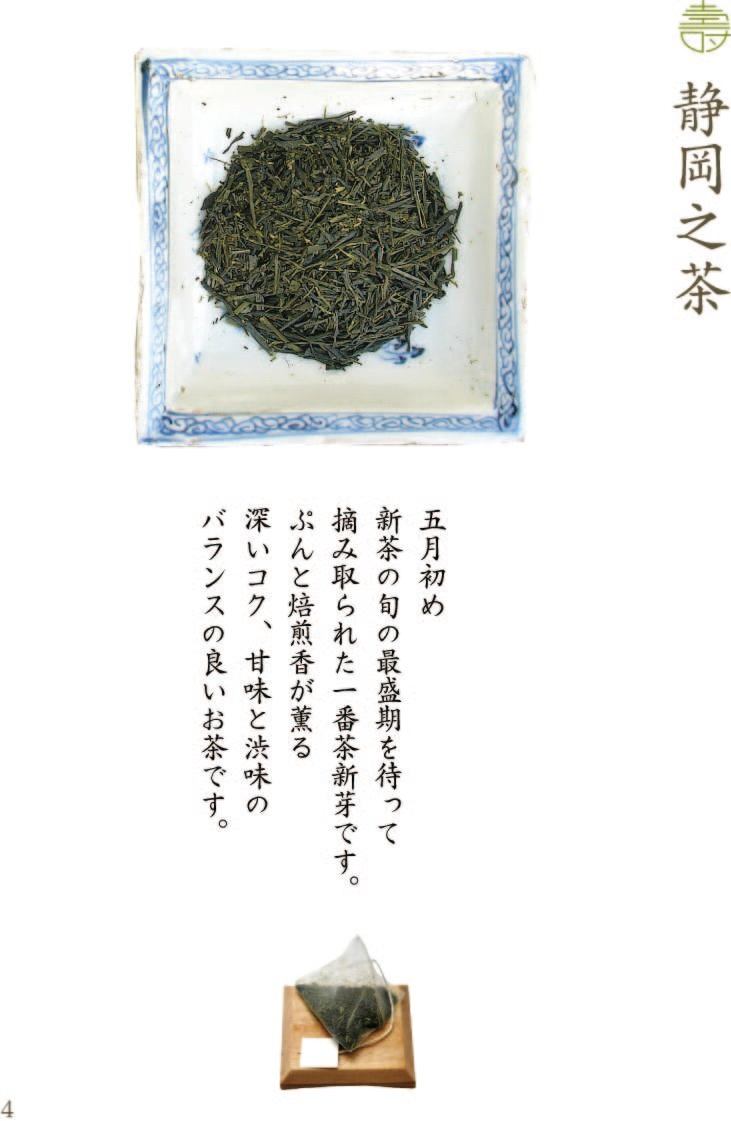 寿
静岡之茶
五月初め
新茶の旬の最盛期を待って
摘み取られた一番茶新芽です。
ぷんと焙煎香が薫る
深いコク、甘味と渋味の
バランスの良いお茶です。
4